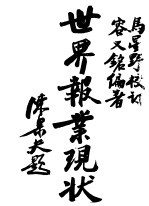 馬星野校訂
容又銘編著
世界報業現状
陳果夫題